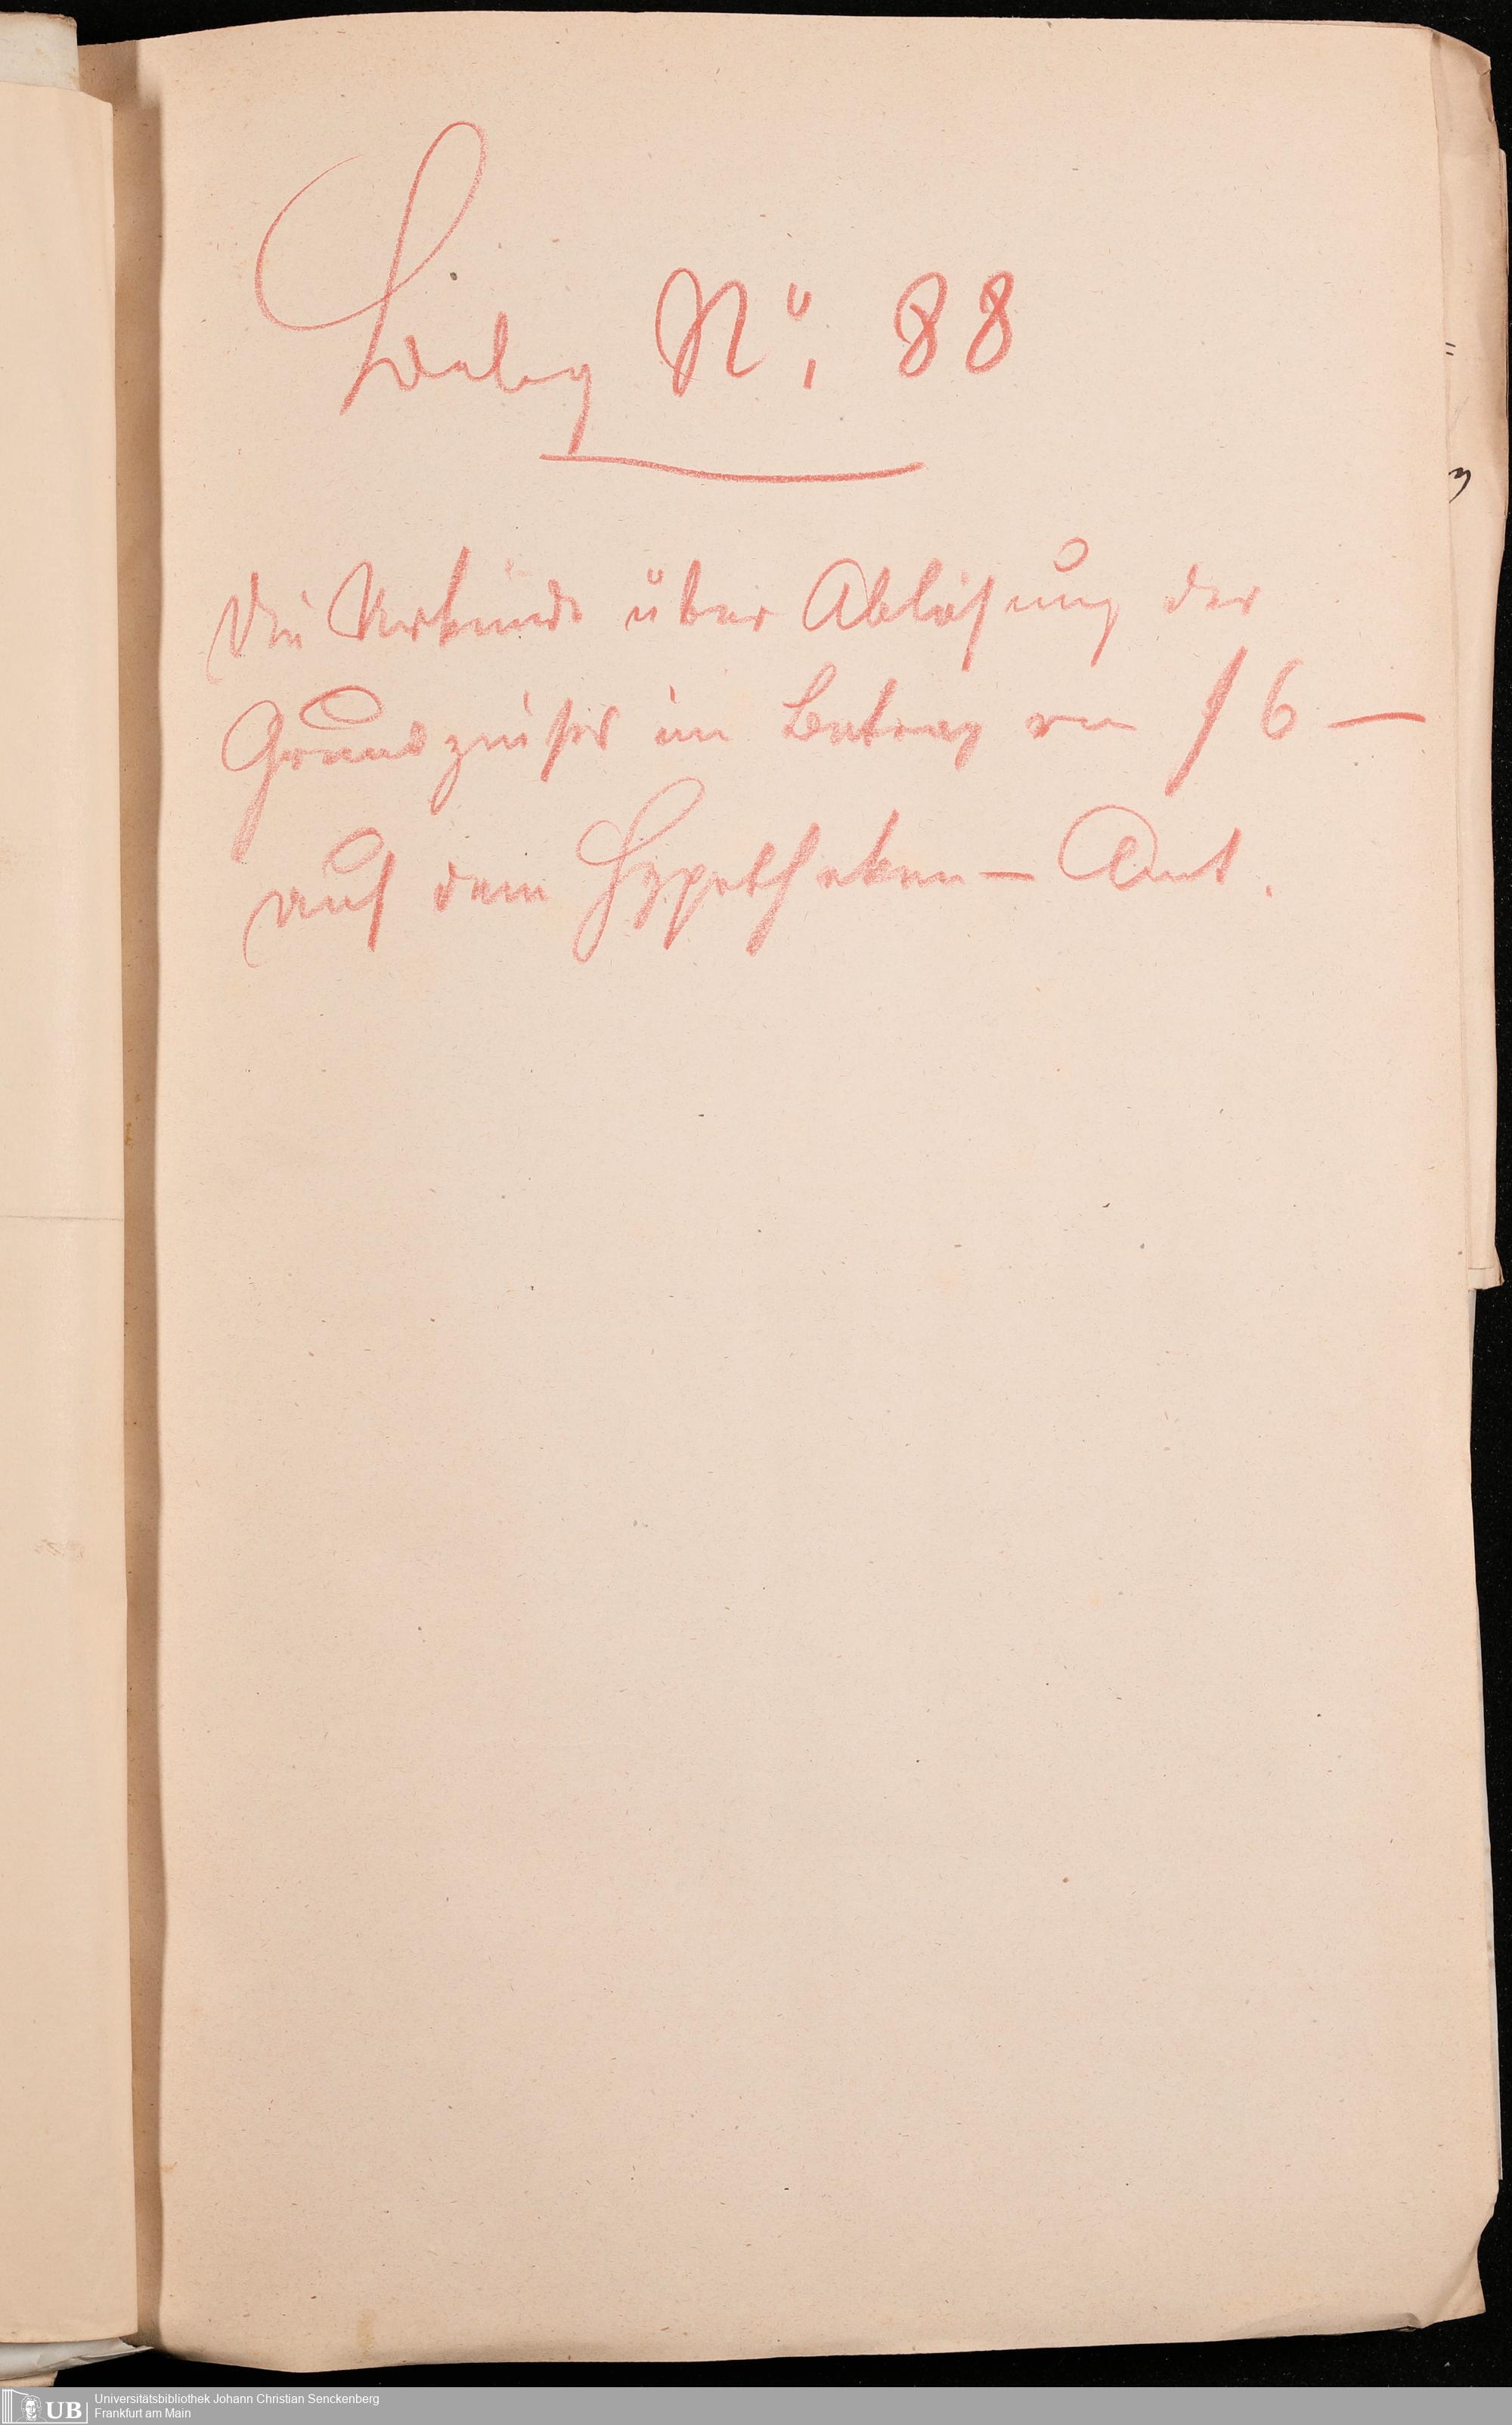 Beleg No. 88
Die Urkunde über Ablösung der
Grundzinses im Betrag von f 6 —
auf dem Hypotheken-Amt.
UB
Universitätsbibliothek Johann Christian Senckenberg
Frankfurt am Main